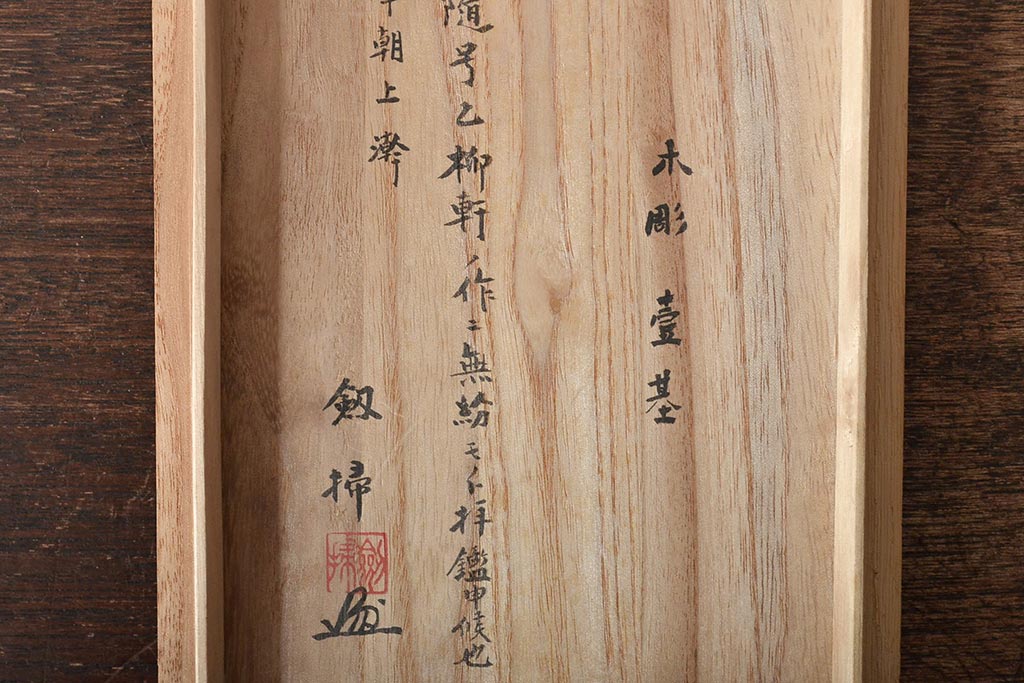 木彫 壹基
随号乙柳軒ノ作ニ無紛モノト拝鑑申候也
朝上澣
劔掃